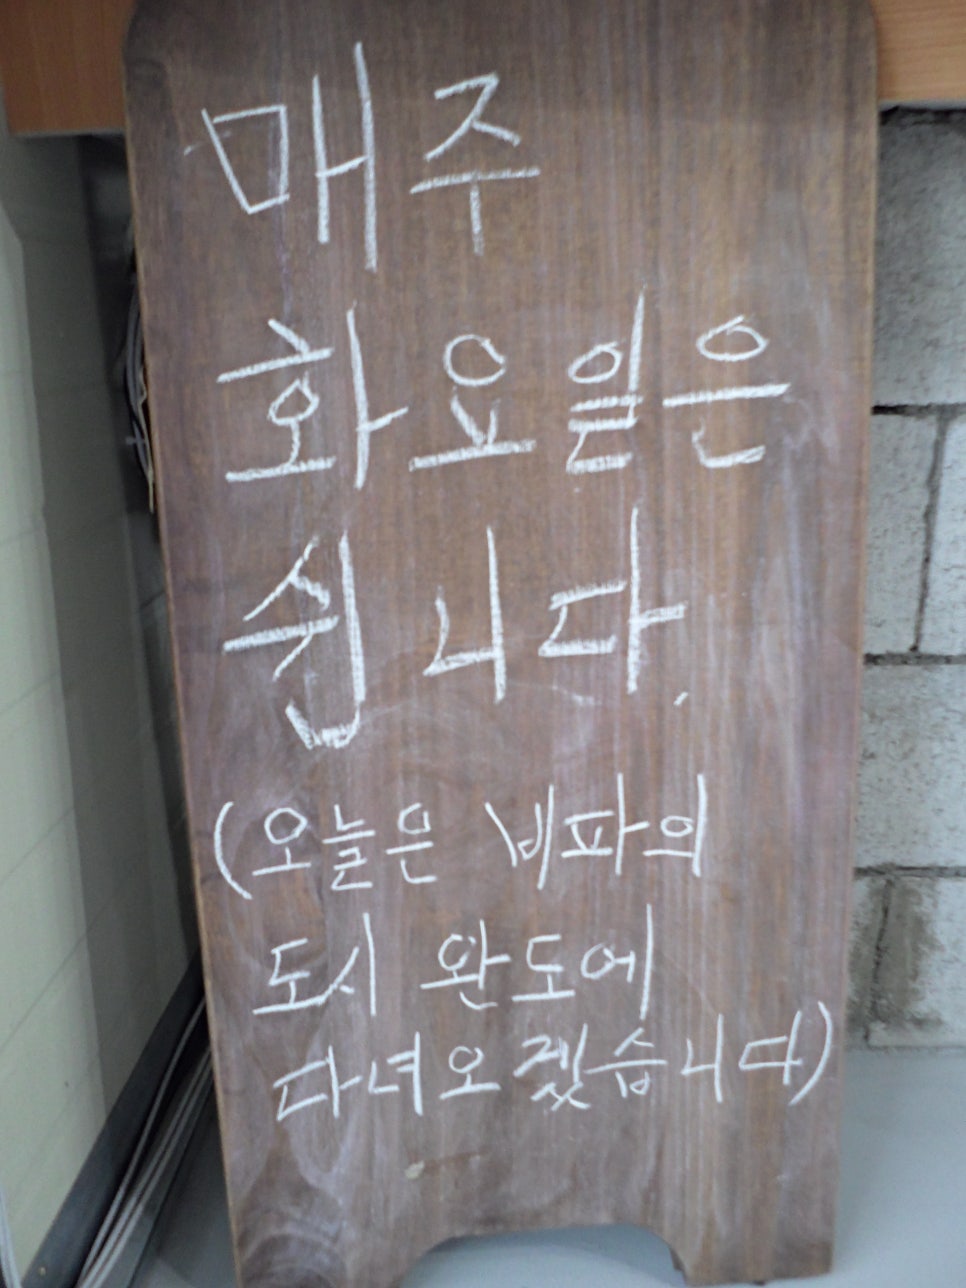 매주
화요일은
쉽니다.
(오늘은 비파의
도시 완도에
다녀오겠습니다)